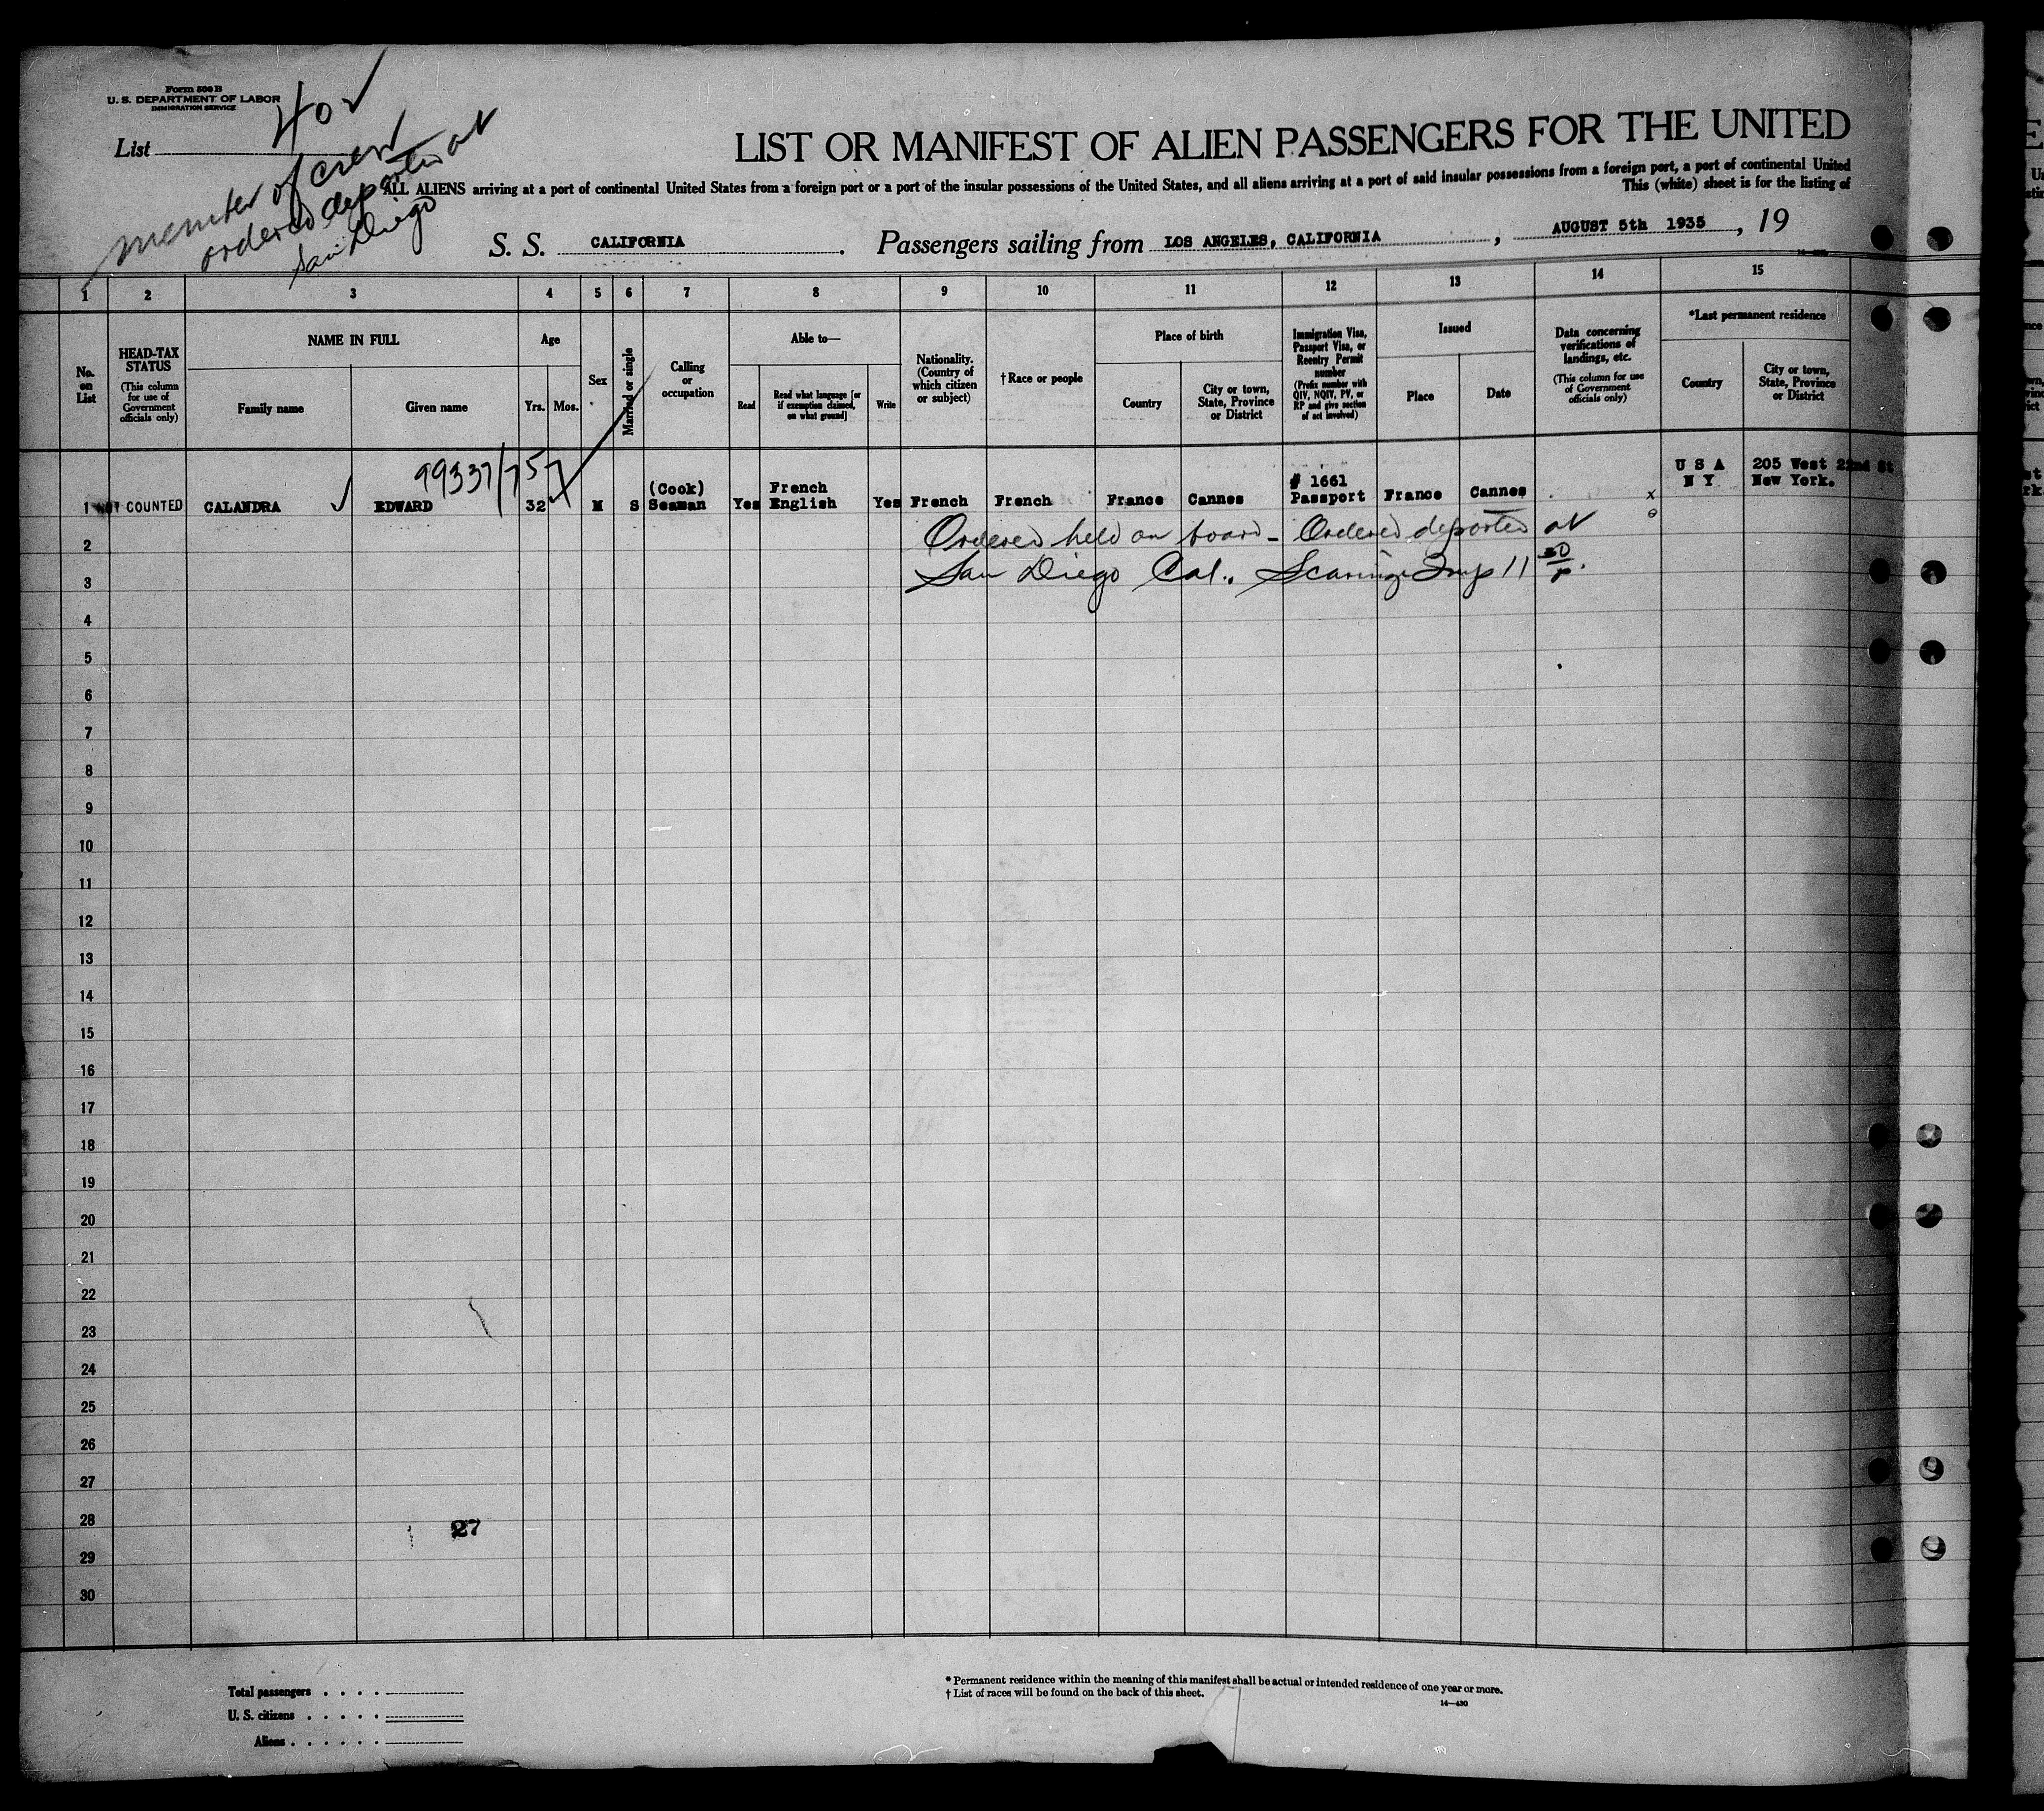 Form 500 B
U. S. DEPARTMENT OF LABOR
IMMIGRATION SERVICE
List
40
member of crew
ordered deported at
San Diego
LIST OR MANIFEST OF ALIEN PASSENGERS FOR THE UNITED
ALL ALIENS arriving at a port of continental United States from a foreign port or a port of the insular possessions of the United States, and all aliens arriving at a port of said insular possessions from a foreign port, a port of continental United
This (white) sheet is for the listing of
S. S. CALIFORNIA. Passengers sailing from LOS ANGELES, CALIFORNIA, AUGUST 5th 1935, 19
1 2 3 4 5 6 7 8 9 10 11 12 13 14 15
No. on List
HEAD-TAX STATUS (This column for use of Government officials only)
NAME IN FULL
Family name
Given name
Age
Yrs. Mos.
Sex
Married or single
Calling or occupation
Able to—
Read
Read what language [or if exemption claimed, on what ground]
Write
Nationality. (Country of which citizen or subject)
†Race or people
Place of birth
Country
City or town, State, Province or District
Immigration Visa, Passport Visa, or Reentry Permit number (Prefix number with QIV, NQIV, PV, or RP and give section of act involved)
Issued
Place
Date
Data concerning verifications of landings, etc. (This column for use of Government officials only)
*Last permanent residence
Country
City or town, State, Province or District
99337/757
1 NOT COUNTED CALANDRA EDWARD 32 M S (Cook) Seaman Yes French English Yes French French France Cannes # 1661 Passport France Cannes U S A N Y 205 West 22nd St New York.
x
Ordered held on board - Ordered deported at
San Diego Cal., Insp 11
2
3
4
5
6
7
8
9
10
11
12
13
14
15
16
17
18
19
20
21
22
23
24
25
26
27
28
27
29
30
Total passengers
U. S. citizens
Aliens
* Permanent residence within the meaning of this manifest shall be actual or intended residence of one year or more.
† List of races will be found on the back of this sheet.
14—430